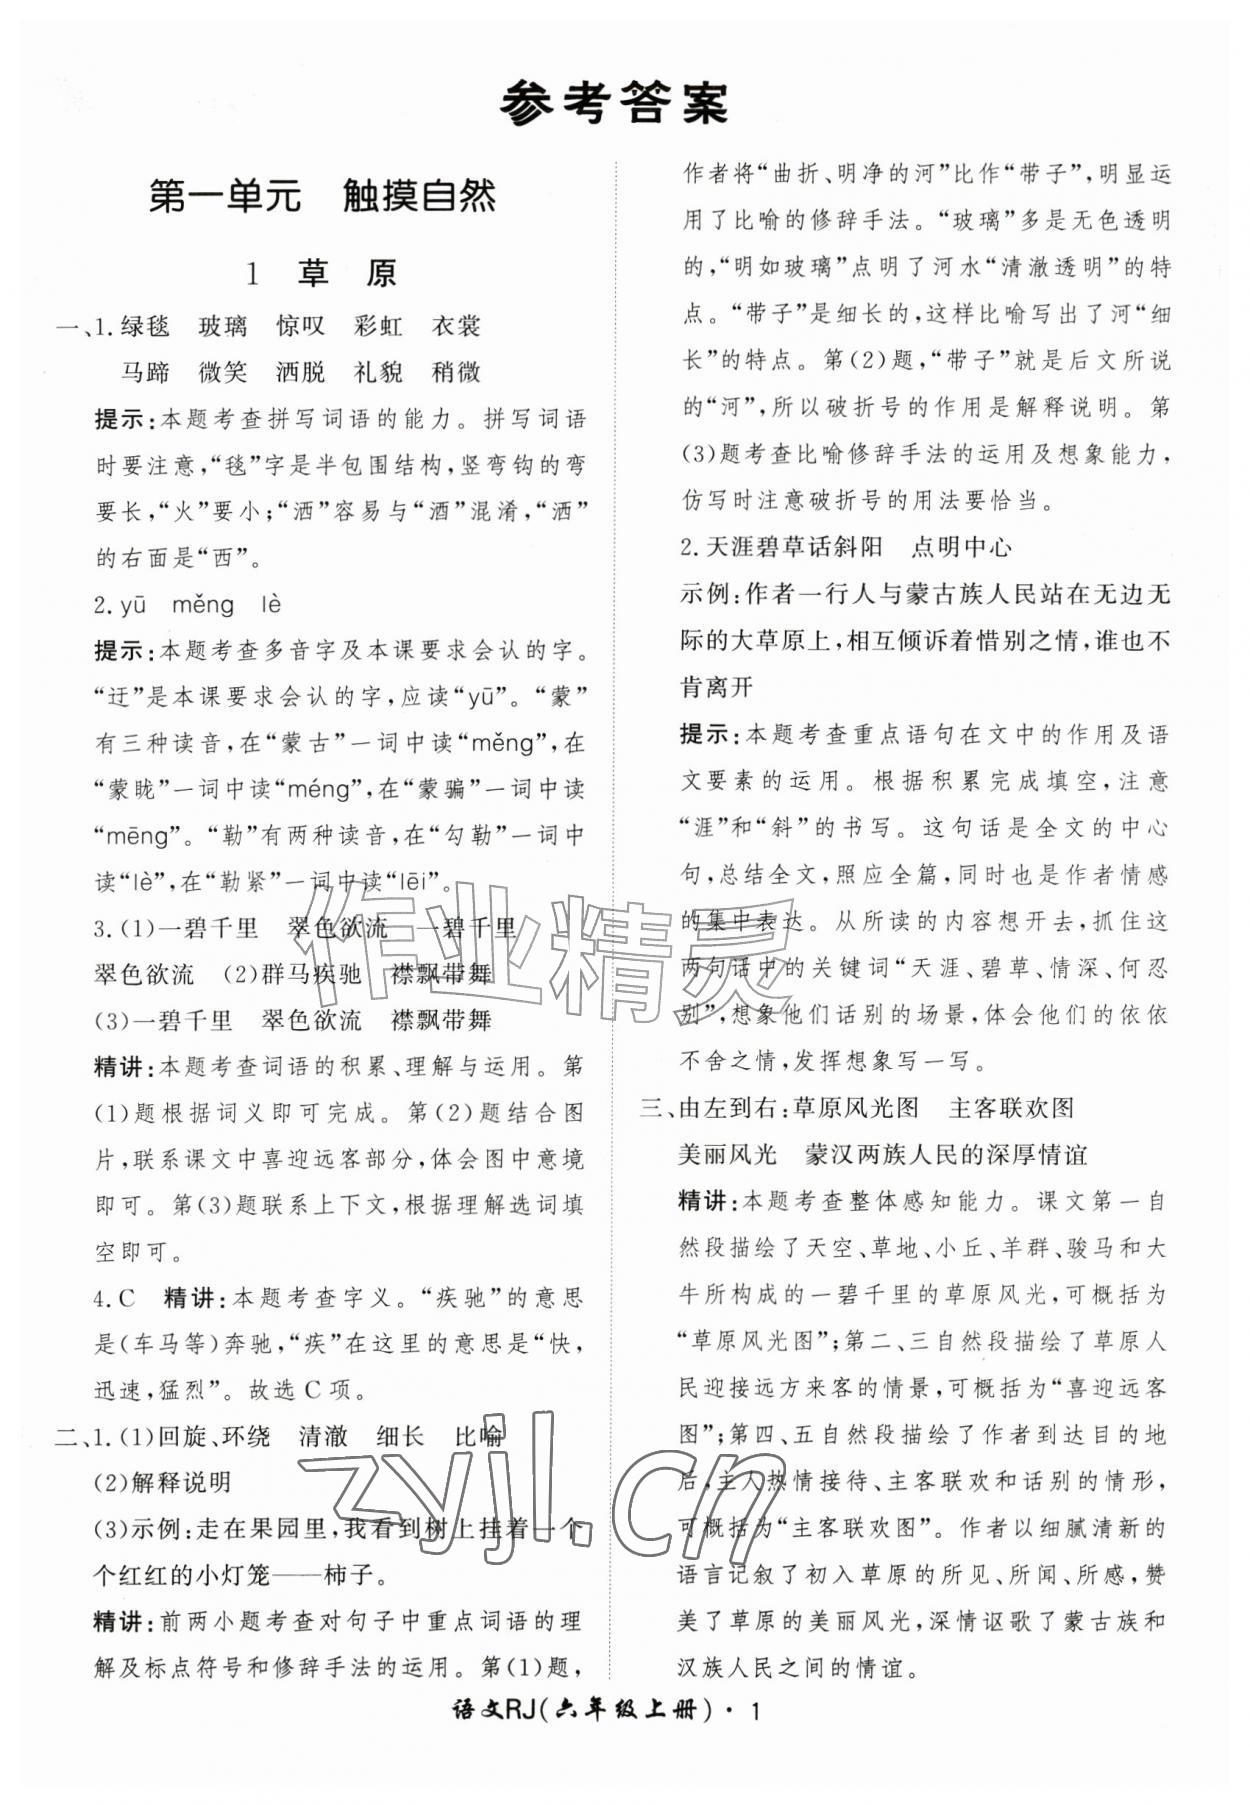 参考答案
第一单元　触摸自然
1　草　原
一、1.绿毯　玻璃　惊叹　彩虹　衣裳
马蹄　微笑　洒脱　礼貌　稍微
提示:本题考查拼写词语的能力。拼写词语
时要注意,“毯”字是半包围结构,竖弯钩的弯
要长,“火”要小;“洒”容易与“酒”混淆,“洒”
的右面是“西”。
2.yū　měng　lè
提示:本题考查多音字及本课要求会认的字。
“迂”是本课要求会认的字,应读“yū”。“蒙”
有三种读音,在“蒙古”一词中读“měng”,在
“蒙眬”一词中读“méng”,在“蒙骗”一词中读
“mēng”。“勒”有两种读音,在“勾勒”一词中
读“lè”,在“勒紧”一词中读“lēi”。
3.(1)一碧千里　翠色欲流　一碧千里
翠色欲流　(2)群马疾驰　襟飘带舞
(3)一碧千里　翠色欲流　襟飘带舞
精讲:本题考查词语的积累、理解与运用。第
(1)题根据词义即可完成。第(2)题结合图
片,联系课文中喜迎远客部分,体会图中意境
即可。第(3)题联系上下文,根据理解选词填
空即可。
4.C　精讲:本题考查字义。“疾驰”的意思
是(车马等)奔驰,“疾”在这里的意思是“快,
迅速,猛烈”。故选C项。
二、1.(1)回旋、环绕　清澈　细长　比喻
(2)解释说明
(3)示例:走在果园里,我看到树上挂着一个
个红红的小灯笼——柿子。
精讲:前两小题考查对句子中重点词语的理
解及标点符号和修辞手法的运用。第(1)题,
作者将“曲折、明净的河”比作“带子”,明显运
用了比喻的修辞手法。“玻璃”多是无色透明
的,“明如玻璃”点明了河水“清澈透明”的特
点。“带子”是细长的,这样比喻写出了河“细
长”的特点。第(2)题,“带子”就是后文所说
的“河”,所以破折号的作用是解释说明。第
(3)题考查比喻修辞手法的运用及想象能力,
仿写时注意破折号的用法要恰当。
2.天涯碧草话斜阳　点明中心
示例:作者一行人与蒙古族人民站在无边无
际的大草原上,相互倾诉着惜别之情,谁也不
肯离开
提示:本题考查重点语句在文中的作用及语
文要素的运用。根据积累完成填空,注意
“涯”和“斜”的书写。这句话是全文的中心
句,总结全文,照应全篇,同时也是作者情感
的集中表达。从所读的内容想开去,抓住这
两句话中的关键词“天涯、碧草、情深、何忍
别”,想象他们话别的场景,体会他们的依依
不舍之情,发挥想象写一写。
三、由左到右:草原风光图　主客联欢图
美丽风光　蒙汉两族人民的深厚情谊
精讲:本题考查整体感知能力。课文第一自
然段描绘了天空、草地、小丘、羊群、骏马和大
牛所构成的一碧千里的草原风光,可概括为
“草原风光图”;第二、三自然段描绘了草原人
民迎接远方来客的情景,可概括为“喜迎远客
图”;第四、五自然段描绘了作者到达目的地
后,主人热情接待、主客联欢和话别的情形,
可概括为“主客联欢图”。作者以细腻清新的
语言记叙了初入草原的所见、所闻、所感,赞
美了草原的美丽风光,深情讴歌了蒙古族和
汉族人民之间的情谊。
作业精灵
zyjl.cn
语文RJ(六年级上册)·1